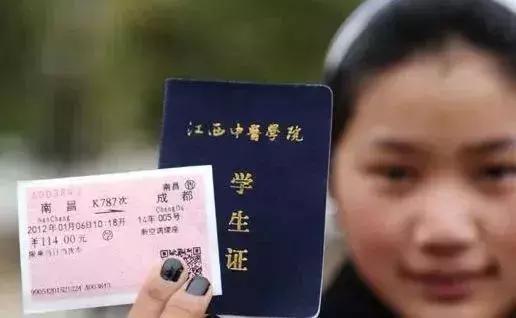 A003843
南昌 售
南昌 K787次 成都
NanChang ChengDu
2012年01月06日10:18开 14车005号
¥114.00元 新空调硬座
学
限乘当日当次车
A003843
江西中醫學院
学
生
证